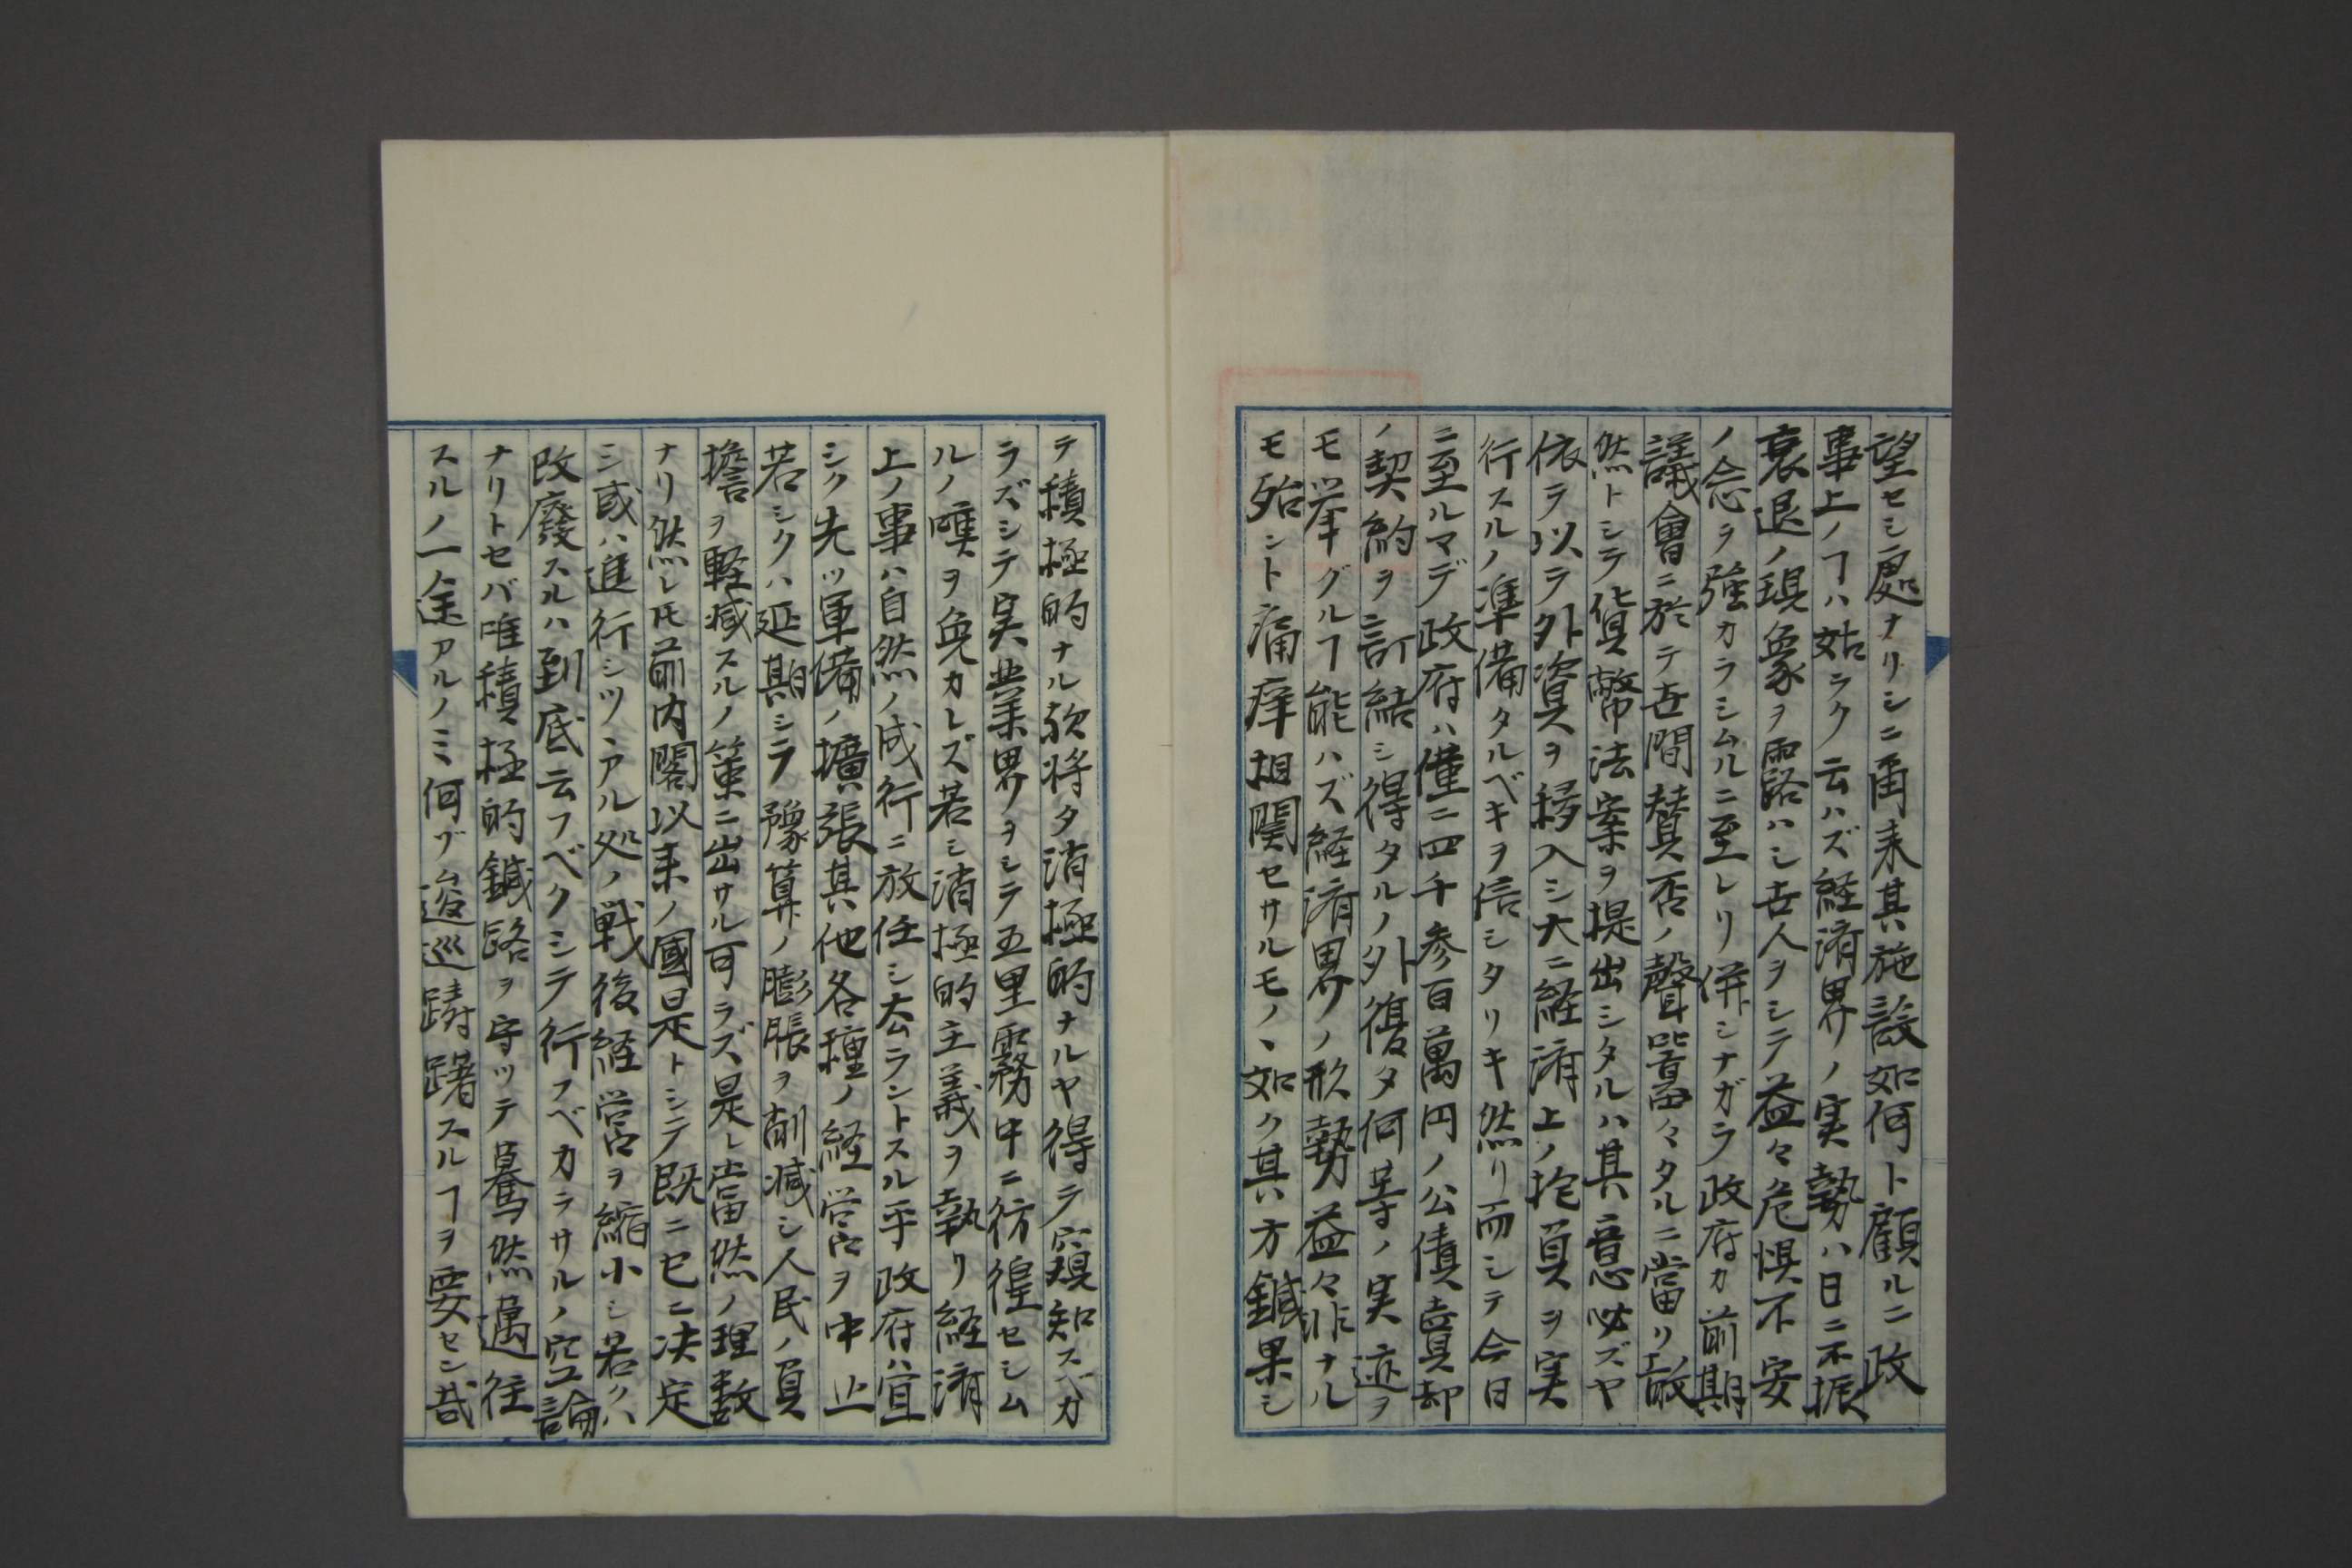 望セシ處ナリシニ甬来其施設如何ト顧ルニ政
事上ノヿハ姑ラク云ハズ経済界ノ実勢ハ日ニ不振
衰退ノ現象ヲ露ハシ世人ヲシテ益々危惧不安
ノ念ヲ強カラシムルニ至レリ併シナガラ政府カ前期
議會ニ於テ世間賛否ノ聲囂々タルニ當リ敢
然トシテ貨幣法案ヲ提出シタルハ其意必ズヤ
依テ以テ外資ヲ移入シ大ニ経済上ノ抱負ヲ実
行スルノ準備タルベキヲ信シタリキ然リ而シテ今日
ニ至ルマデ政府ハ僅ニ四千参百萬円ノ公債賣却
ノ契約ヲ訂結シ得タルノ外復タ何等ノ実迹ヲ
モ挙グルヿ能ハズ経済界ノ形勢益々非ナル
モ殆ント痛痒相関セサルモノヽ如ク其方鍼果シ
テ積極的ナル欤将タ消極的ナルヤ得テ窺知スベカ
ラズシテ実業界ヲシテ五里霧中ニ彷徨セシム
ルノ嘆ヲ免カレズ若シ消極的主義ヲ執リ経済
上ノ事ハ自然ノ成行ニ放任シ去ラントスル乎政府ハ宜
シク先ツ軍備ノ擴張其他各種ノ経営ヲ中止
若シクハ延期シテ豫算ノ膨脹ヲ削減シ人民ノ負
擔ヲ軽減スルノ策ニ出サル可ラズ是レ當然ノ理数
ナリ然レ𪜈前内閣以来ノ國是トシテ既ニ已ニ决定
シ或ハ進行シツヽアル処ノ戦後経営ヲ縮小シ若クハ
改廢スルハ到底云フベクシテ行フベカラサルノ空論
ナリトセバ唯積極的鍼路ヲ守ツテ驀然邁往
スルノ一途アルノミ何ヅ逡巡躊躇スルヿヲ要セン哉